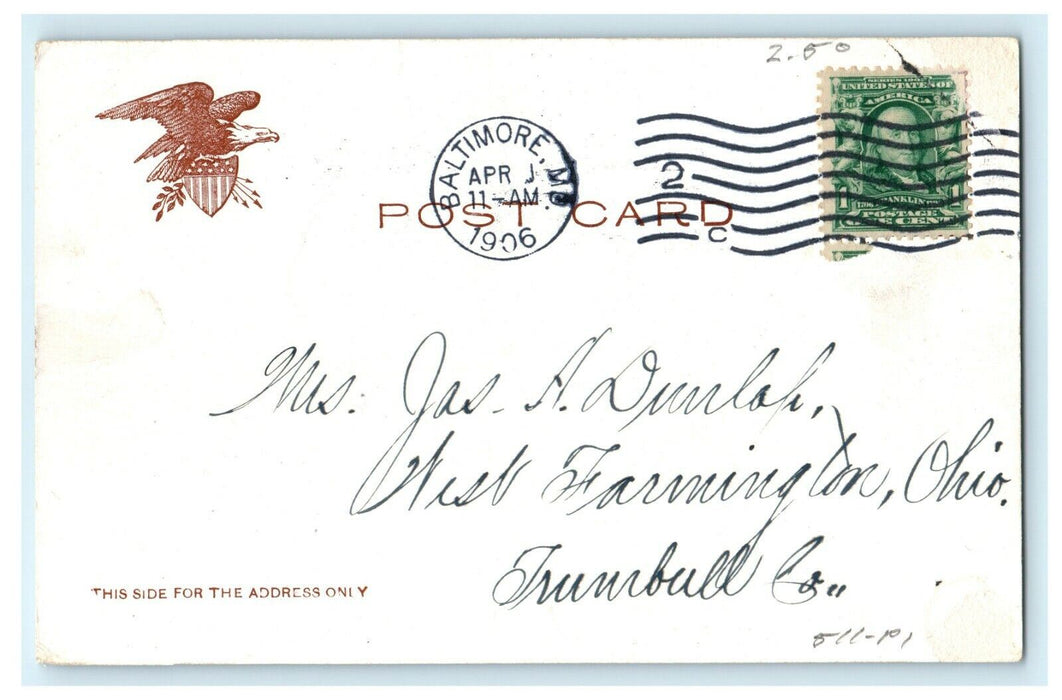 2.50
SERIES 1902
UNITED STATES OF
AMERICA
BALTIMORE, MD
APR
11-AM.
1906
2
C
POST CARD
1 FRANKLIN 1
POSTAGE
ONE CENT
Mrs. Jas. A. Dunlap,
West Farmington, Ohio.
Trumbull Co.,
THIS SIDE FOR THE ADDRESS ONLY
511-P1